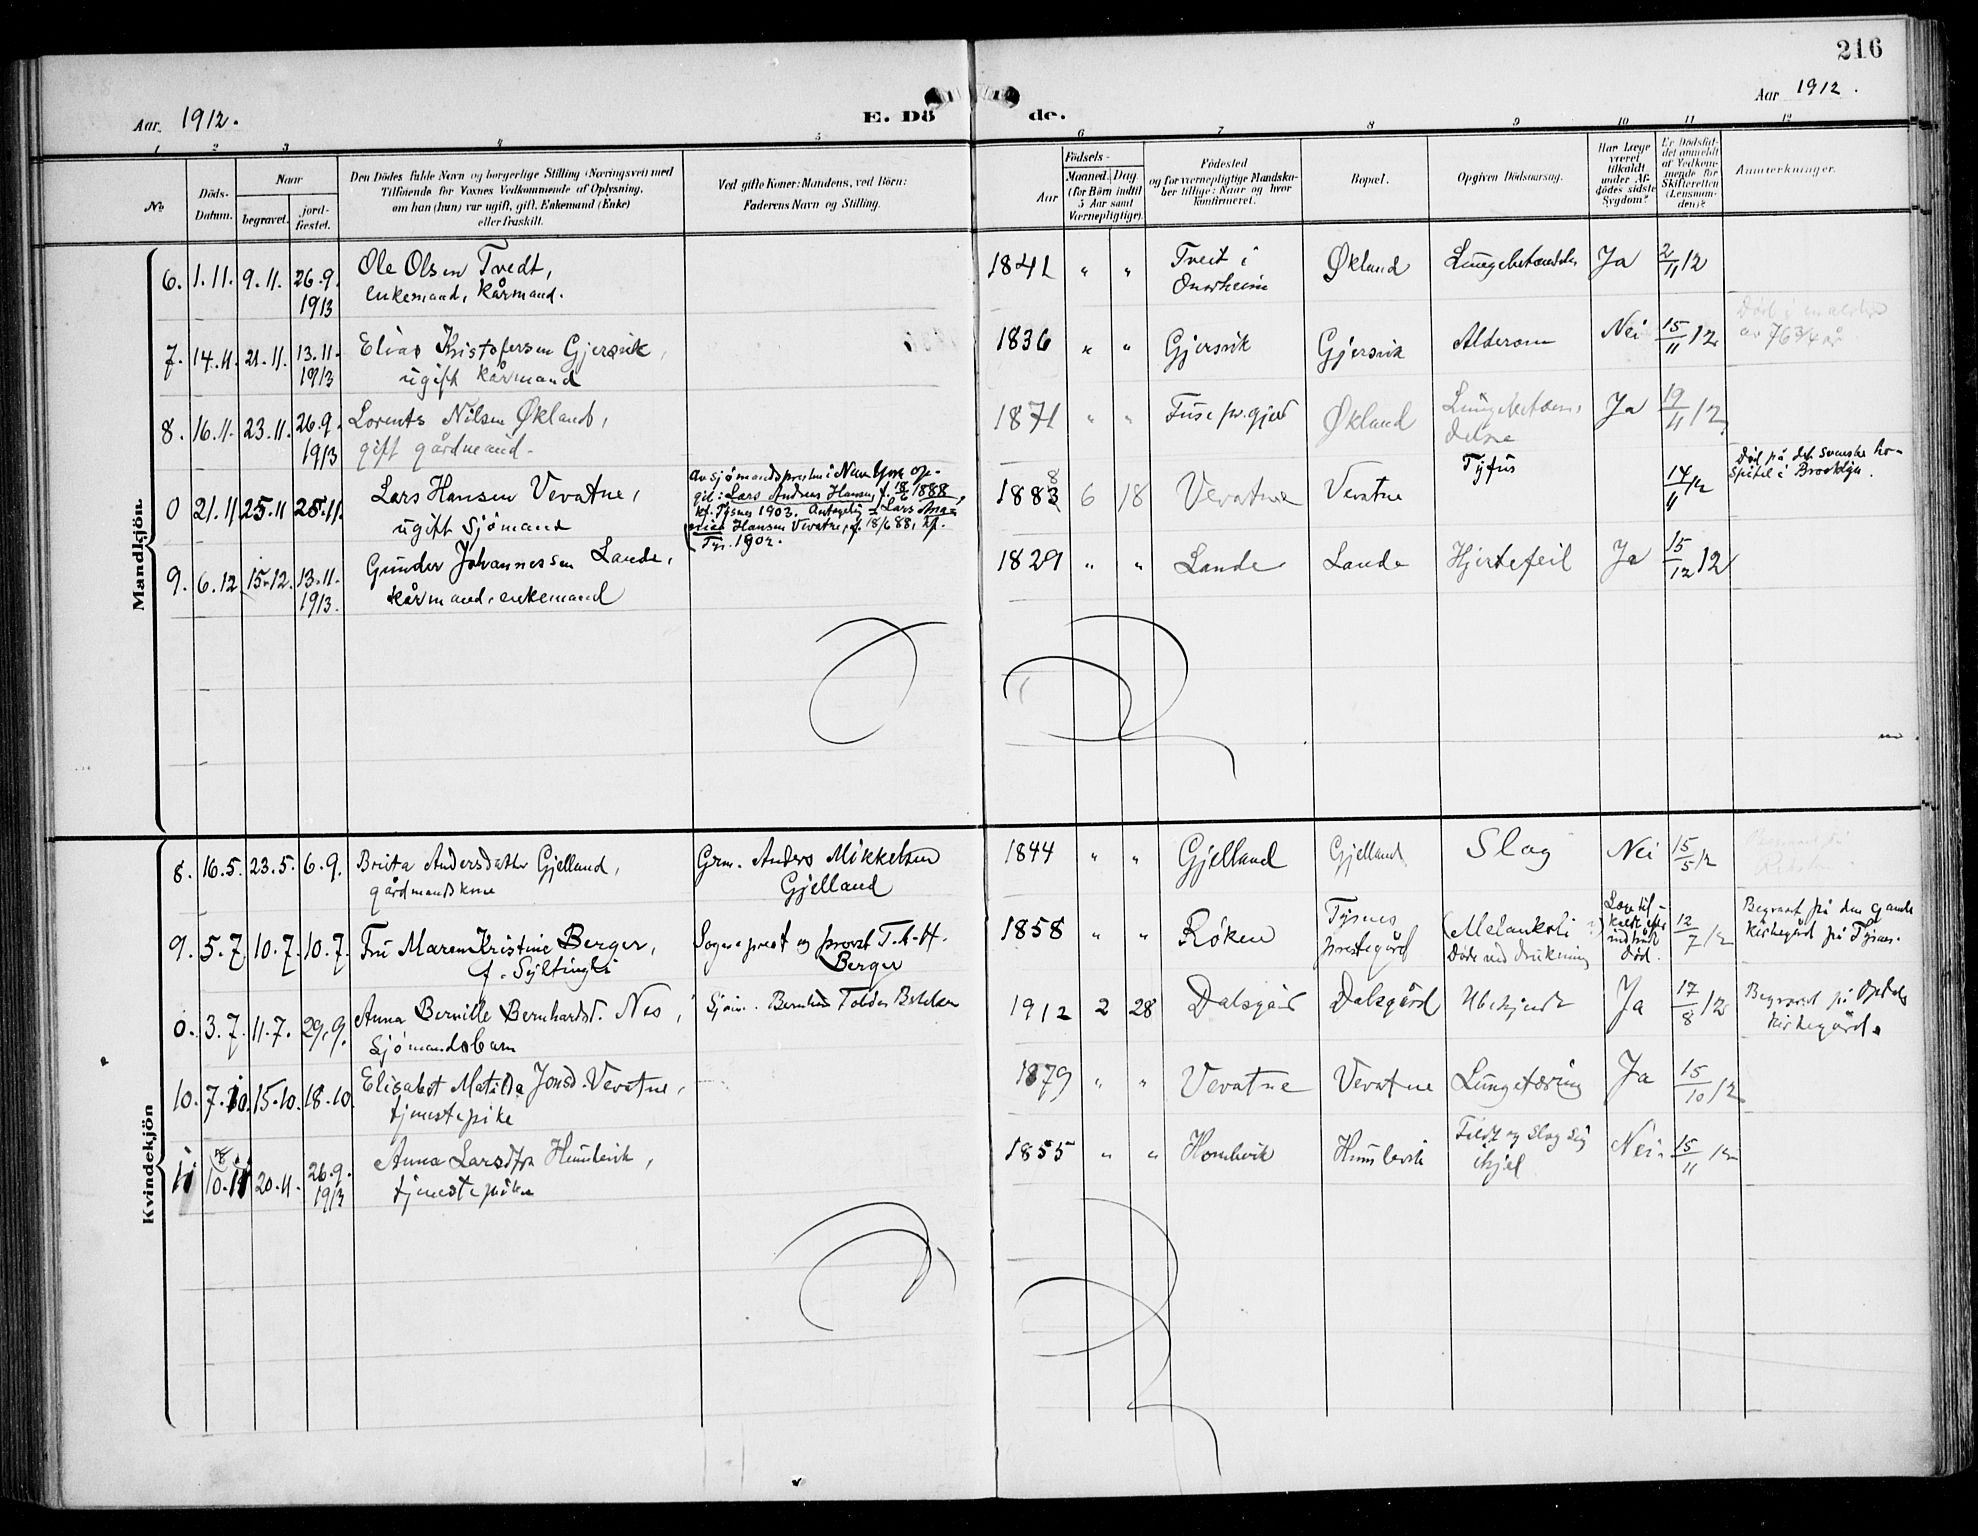 216
Aar 1912.
E. Dö
de.
Aar 1912.
1 2 3 4 5 6 7 8 9 10 11 12
No.
Döds-
Datum.
Naar
begravet.
jord-
fæstet.
Den Dödes fulde Navn og borgerlige Stilling (Næringsvei) med
Tilföiende for Voxnes Vedkommende af Oplysning,
om han (hun) var ugift, gift, Enkemand (Enke)
eller fraskilt.
Ved gifte Koner: Mandens, ved Börn:
Faderens Navn og Stilling.
Aar
Födsels-
Maaned. Dag.
(for Börn indtil
5 Aar samt
Værnepligtige).
Födested
og for værnepligtige Mandska-
ber tillige: Naar og hvor
konfirmeret.
Bopæl.
Opgiven Dödsaarsag.
Har Læge
været
tilkaldt
under Af-
dödes sidste
Sygdom?
Er Dödsfal-
det anmeldt
af Vedkom-
mende for
Skifteretten
(Lensman-
den)?
Anmerkninger.
Mandkjön.
6. 1.11. 9.11. 26.9. 1913 Ole Olsen Tvedt,
enkemand, kårmand.
1841 " " Tveit i
Onarheim Økland Lungebetændelse Ja 2/11 12
7. 14.11. 21.11. 13.11. 1913 Elias Kristofersen Gjersvik,
ugift kårmand
1836 " " Gjersvik Gjersvik Alderdom Nei 15/11 12
Död i
av 76 3/4 år
8. 16.11. 23.11. 26.9. 1913 Lorents Nilsen Økland,
gift gårdmand.
1871 " " Fuse pr.gjeld Økland Lungebetæn-
delse Ja 19/11 12
0 21.11 25.11 25.11. Lars Hansen Vevatne,
ugift sjömand
Av sjömandspresten i New York op-
git: Lars Andreas Hansen, f. 18/6 1888,
kf. Tysnes 1903. Antagelig = Lars
Hansen Vevatne, f. 18/6 88, kf.
Tys. 1902.
1883 8 6 18 Vevatne Vevatne Tyfus 14/11 12
Död på det svenske ho-
spital i Brooklyn.
9. 6.12 15.12. 13.11. 1913. Gunder Johannessen Lande,
kårmand, enkemand
1829 " " Lande Lande Hjertefeil Ja 15/12 12
Kvindekjön
8. 16.5. 23.5. 6.9. Brita Andersdatter Gjelland,
gårdmandskone
Grm. Anders Mikkelsen
Gjelland
1844 " " Gjelland Gjelland Slag Nei 15/5 12
9. 5.7. 10.7. 10.7. Fru Maren Kristine Berger,
f.
Sogneprest og provst T. A. H.
Berger
1858 " " Röken Tysnes
prestegård (Melankoli ?)
Döde ved drukning
Læge til-
kaldt efter
indtruf
död. 12/7 12
Begravet på den gamle
kirkegård på Tysnes.
0. 3.7. 11.7. 29.9. Anna Bernille Bernhardsd. Nes,
sjömandsbarn
Sjöm. Bernhard
1912 2 28 Dalsgård Dalsgård Ubekjendt Ja 17/8 12
Begravet på Opdals
kirkegård.
10. 7.10. 15.10. 18.10. Elisabet Matilda Jonsd. Vevatne,
tjenestepike
1879 " " Vevatne Vevatne Lungetæring Ja 15/10 12
11 10.11 20.11. 26.9. 1913 Anna Larsdtr. Humlevik,
tjenestepike
1855 " " Humlevik Humlevik Faldt og slog sig
ihjel Nei. 15/11 12